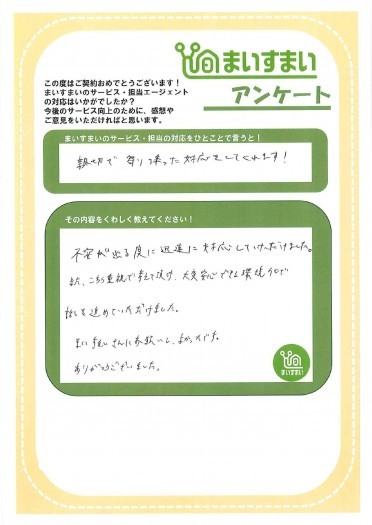 まいすまい
アンケート
この度はご契約おめでとうございます！
まいすまいのサービス・担当エージェント
の対応はいかがでしたか？
今後のサービス向上のために、感想や
ご意見をいただければと思います。
まいすまいのサービス・担当の対応をひとことで言うと！
親切で寄り添った対応をしてくれます！
その内容をくわしく教えてください！
不安が出る度に迅速に対応していただけました。
また、こちら重視で考えて頂き、大変安心できる環境の中で
話を進めていただけました。
まいすまいさんにお願いし、よかったです。
ありがとうございました。
まいすまい